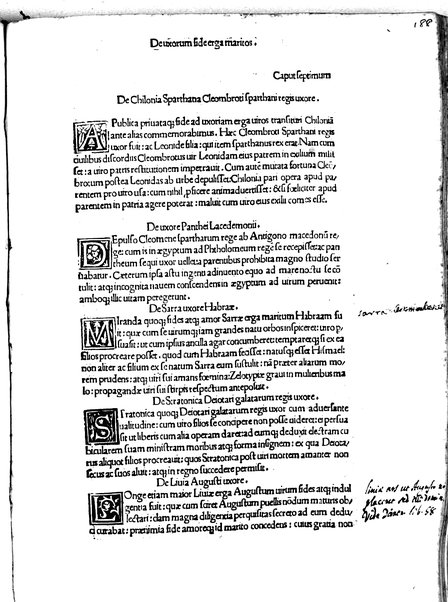 188
De uxorum fide erga maritos.
Caput septimum
De Chilonia Sparthana Cleombroti sparthani regis uxore.
A Publica privataq; fide ad uxoriam erga viros transituri Chiloniã
ante alias commemorabimus. Hæc Cleombroti Sparthani regis
uxor fuit: ac Leonidæ filia: qui item sparthanus rex erat. Nam cum
civilibus discordiis Cleombrotus vir Leonidam eius patrem in exilium misis
set: a viro patris restitutionem impetravit. Cum autẽ mutata fortuna Cleõ
brotum postea Leonidas ab urbe depulisset: Chilonia pari opera apud pa
rentem pro viro usa: cum nihil, pficere animadvertisset: & si fœliciter apud
parentem in patria agere poterat: maluit cum viro eius exilii comes esse.
De uxore Panthei Lacedemonii.
DEpulso Cleomene spartharum rege ab Antigono macedonũ re
ge: cum is in ægyptum ad Ptholomeum regẽ se recepisset: ac pan
theum sequi uxor vellet: a parentibus prohibita magno studio ser
vabatur. Ceterum ipsa astu ingenti adinvento equo ad mare noctu se cõ
tulit: atq; incognita navem conscendens in ægyptum ad virum pervenit:
amboq; illic vitam peregerunt.
De Sarra uxore Habraæ.
MIranda quoq; fides atq; amor Sarræ erga maritum Habraam fu
it: quæ cum se virumq; iam grandes natu orbos inspiceret: viro p
suasit: ut cum ipsius ancilla agar concumberet: temptaretq; si ex ea
filios procreare posset. quod cum Habraam fecisset: natusq; esset Hismael:
non aliter ac filium ex se natum Sarra eum sustulit: nã præter aliarum mo
rem prudens: atq; viri sui amans fœmina: Zelotypiæ gravi in mulieribus ma
lo: propagandæ viri sui stirpis respectum anteposuit.
De Stratonica Deiotari galatarum regis uxore.
STratonica quoq; Deiotari galatarum regis uxor cum adversante
valitudine: cum viro filios se concipere non posse videret: e persua
sit ut liberis cum alia operam daret: ad eumq; deduxit dextram cu
bicularem suam ministram moribus atq; forma insignem: ex qua Deiota
rus aliquot filios procreavit: quos Stratonica post viri mortem amanter non
secus ac suos aluit: atq; in regno succedere permisit.
De Livia Augusti uxore.
LOnge etiam maior Liviæ erga Augustum virum fides atq; indul
gentia fuit: quæ cum sciret Augustum puellis nõdum maturis ob
lectari: clam magna diligentia perquisitas secreto ad eum dedu
ci curabat: præeximia fide amoreq; id marito concedens: cuius gratia non